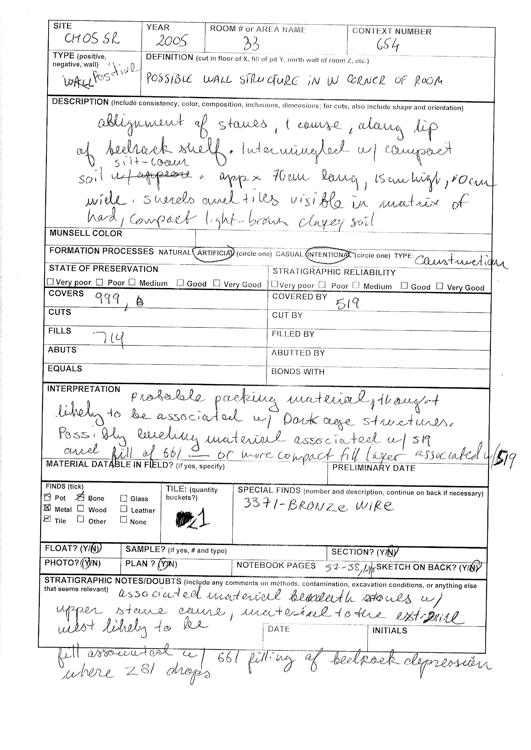 SITE YEAR ROOM # or AREA NAME CONTEXT NUMBER
CH05SR 2005 33 654
TYPE (positive, negative, wall) DEFINITION (cut in floor of X, fill of pit Y, north wall of room Z, etc.)
WALL Positive POSSIBLE WALL STRUCTURE IN W CORNER OF ROOM
DESCRIPTION (include consistency, color, composition, inclusions, dimensions; for cuts, also include shape and orientation)
allignment of stones, 1 course, along lip
of bedrock shelf. Intermingled w/ compact
silt-loam
soil w/ appx 70cm long, 15cm high, 
wide. sherds and tiles visible in matrix of
hard, compact light-brown clayey soil
MUNSELL COLOR
FORMATION PROCESSES NATURAL ARTIFICIAL (circle one) CASUAL INTENTIONAL (circle one) TYPE: Construction
STATE OF PRESERVATION STRATIGRAPHIC RELIABILITY
Very poor Poor Medium Good Very Good Very poor Poor Medium Good Very Good
COVERS 999, COVERED BY 519
CUTS CUT BY
FILLS 714 FILLED BY
ABUTS ABUTTED BY
EQUALS BONDS WITH
INTERPRETATION Probable packing material, thought
likely to be associated w/ Dark age structures.
Possibly leveling material associated w/ 519
and fill of 661 — or more compact fill layer associated w/ 519
MATERIAL DATABLE IN FIELD? (if yes, specify) PRELIMINARY DATE
FINDS (tick) TILE: (quantity buckets?) SPECIAL FINDS (number and description, continue on back if necessary)
Pot Bone Glass 3371-BRONZE WIRE
Metal Wood Leather 21
Tile Other None
FLOAT? (Y/N) SAMPLE? (if yes, # and type) SECTION? (Y/N)
PHOTO? (Y/N) PLAN? (Y/N) NOTEBOOK PAGES 57-58, SKETCH ON BACK? (Y/N)
STRATIGRAPHIC NOTES/DOUBTS (include any comments on methods, contamination, excavation conditions, or anything else
that seems relevant) associated material beneath stones w/
upper stone course, material to the
west likely to be DATE INITIALS
fill associated w/ 661 filling of bedrock depression
where 281 drops